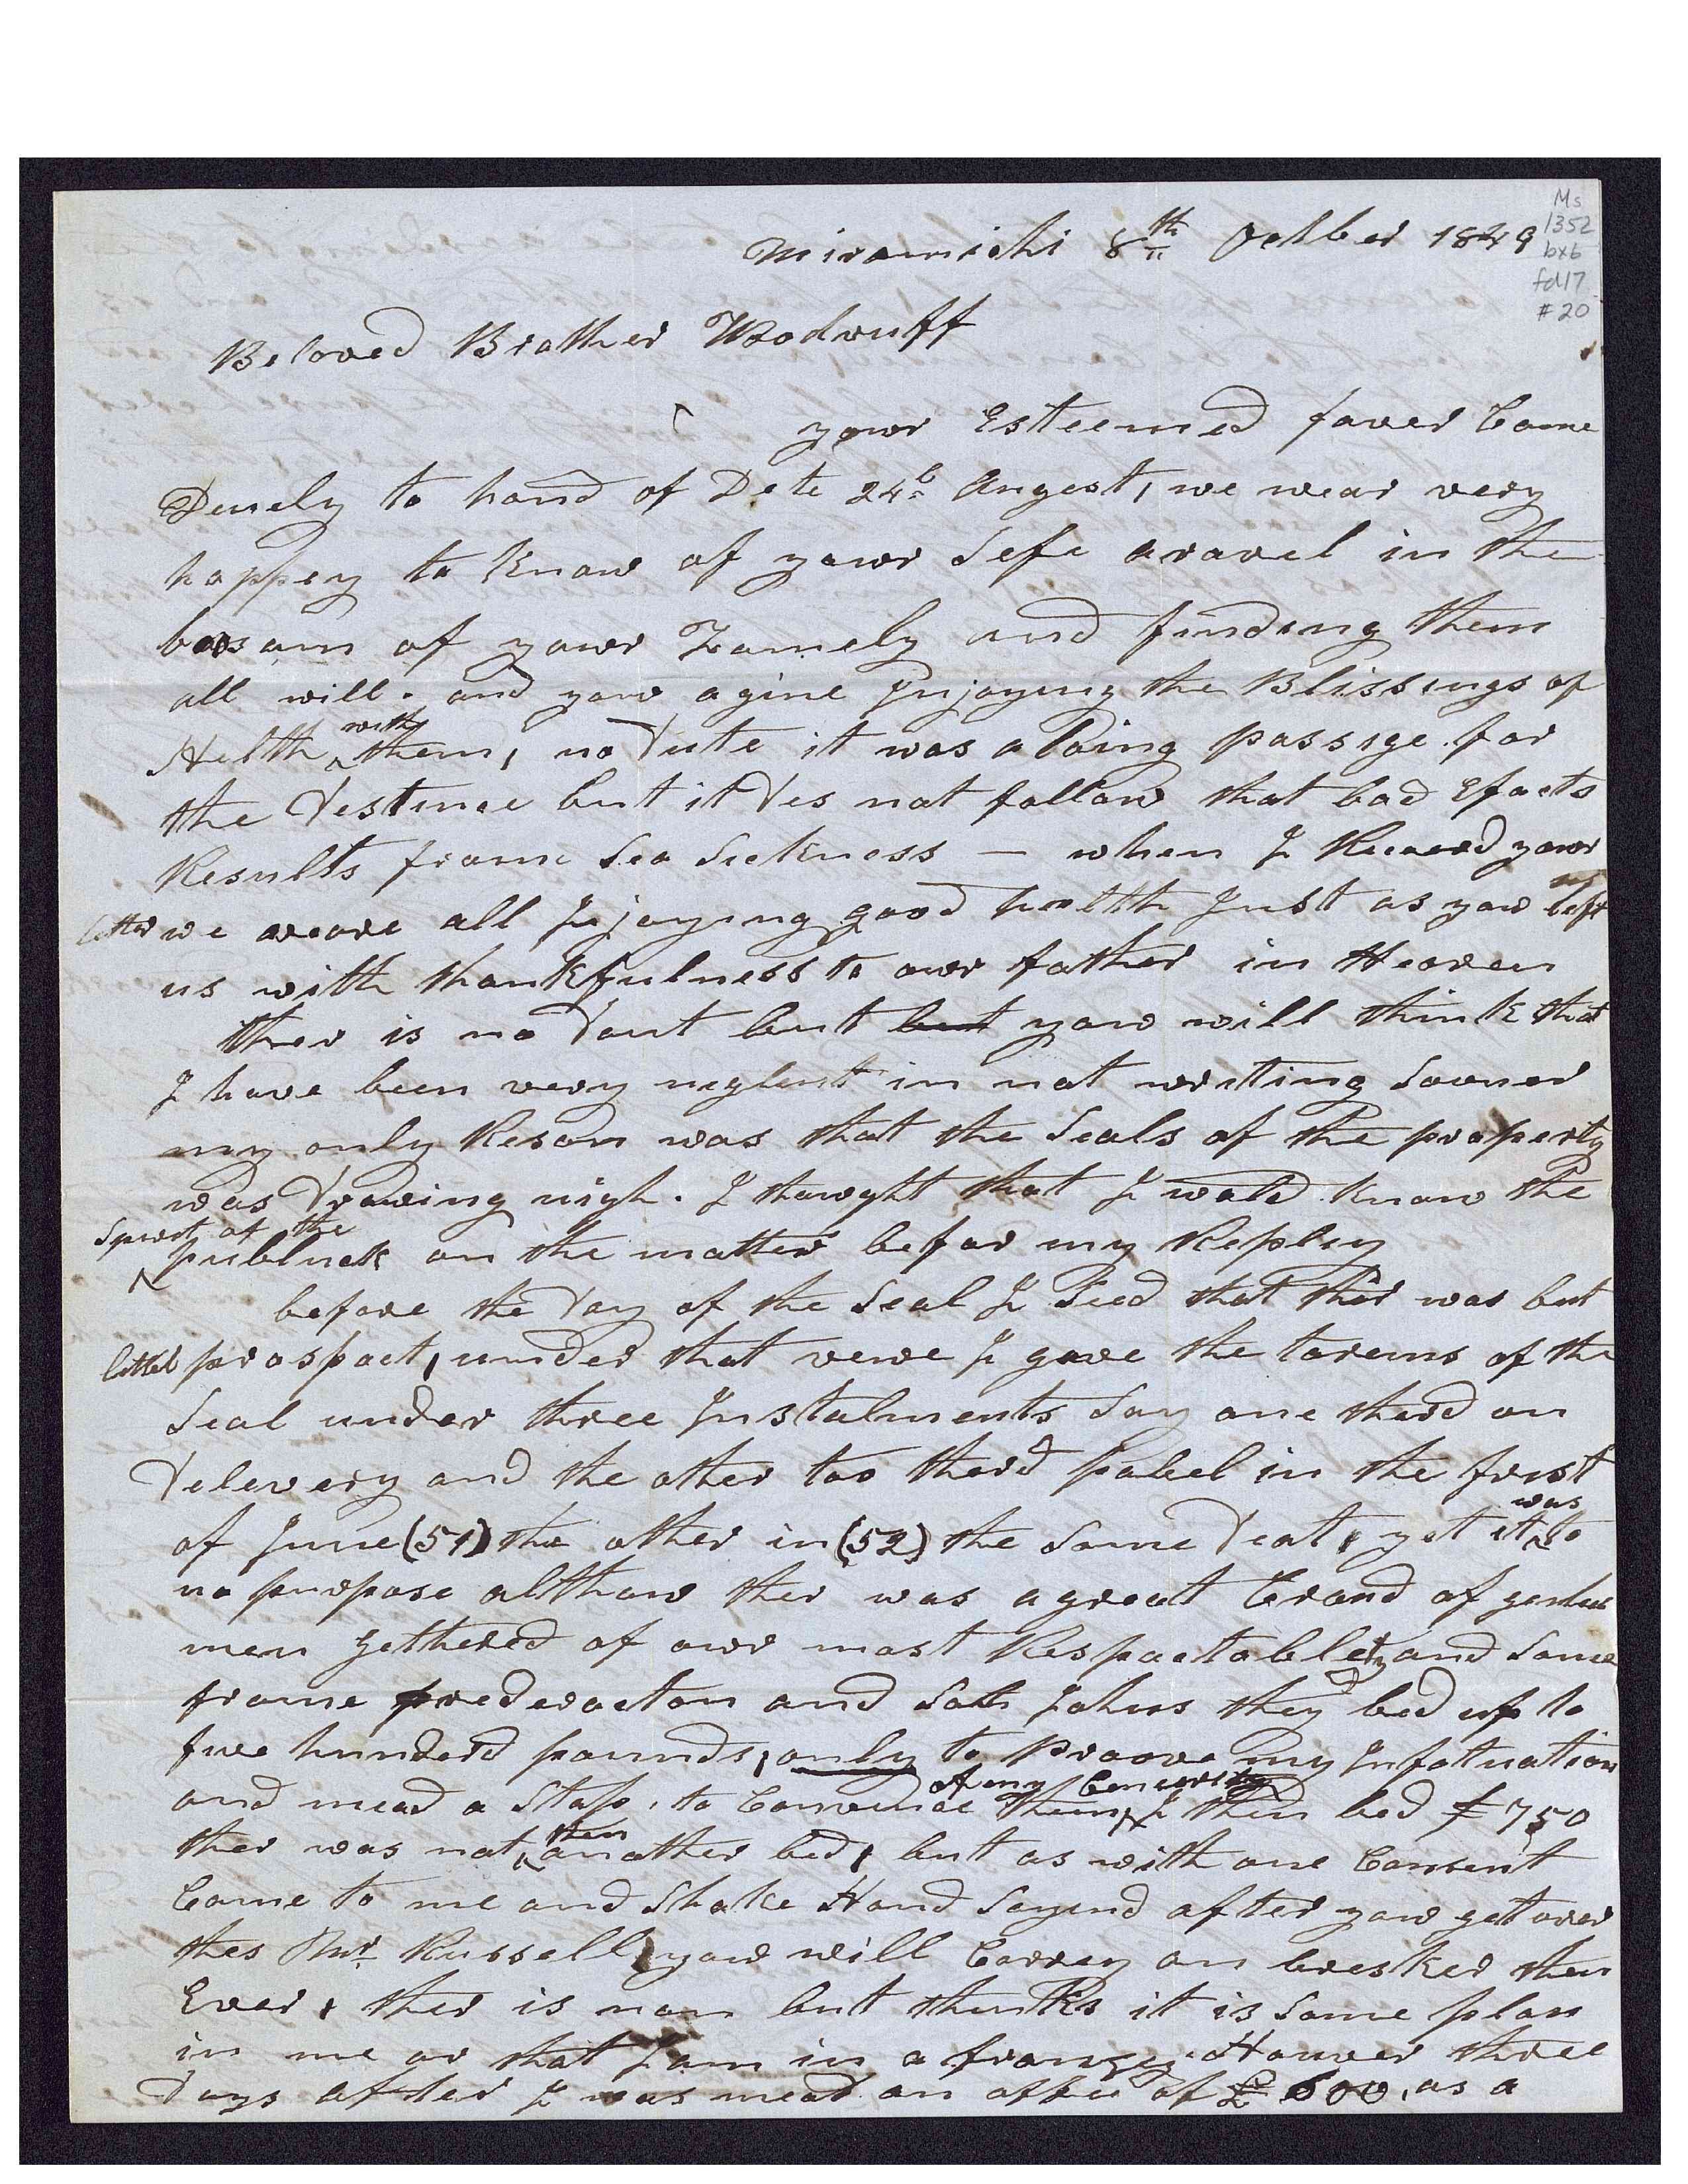 Miramichi 8th October 1849
Ms
1352
bx6
fd17
#20
Beloved Brother Woodruff
your Esteemed faver Came
Duely to hand of Dete 24th Augest, we wear very
happey to know of your Sefe aravel in the
boosam of your Famely and finding them
all will. and you agine Injoying the Blissings of
Helth with them, no Dute it was a loing passige for
the Destince but it Des not follow that bad Efects
Results frome Sea Sickness — when I Receved your
letter we weare all Injoying good health Just as you left
us with thankfulness to owr father in Heaven
ther is no Dout but but you will think that
I have been very neglent in not writing Sooner
my only Reson was that the Seals of the property
was Drawing nigh. I thought that I wold know the
Spirit of the publick on the matter befor my Repley
before the Day of the Seal I Seed that ther was but
littel prospect, under that vewe I gave the tarems of the
Seal under three Instalments Say one therd on
Delevery and the other too therd pabel in the first
of June (51) the other in (52) the Same Deat, yet it was to
no purpose althow ther was a great Croud of gentel
men gethered of owr most Respectablety and Some
frome frederacton and Sath Johns they bed up to
five hunderd pounds, only to proove my Infatuation
and mead a Stop, to Convence them of my Cencerity I then bed £750
ther was not then another bed, but as with one Consent
Came to me and Shake Hand Sayend after you get over
thes Mr. Russell you will Carrey on bresker then
Ever, ther is non but thinks it is Some plan
in me or that I am in a franzey. Houver three
Days after I was mead an offer of £600, as a